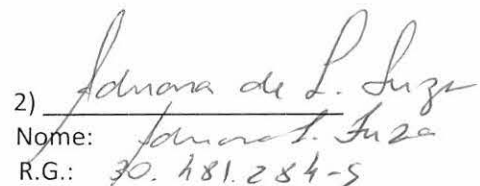 2) Adriana de L. Fuza
Nome: Adriana L. Fuza
R.G.: 30.481.284-5